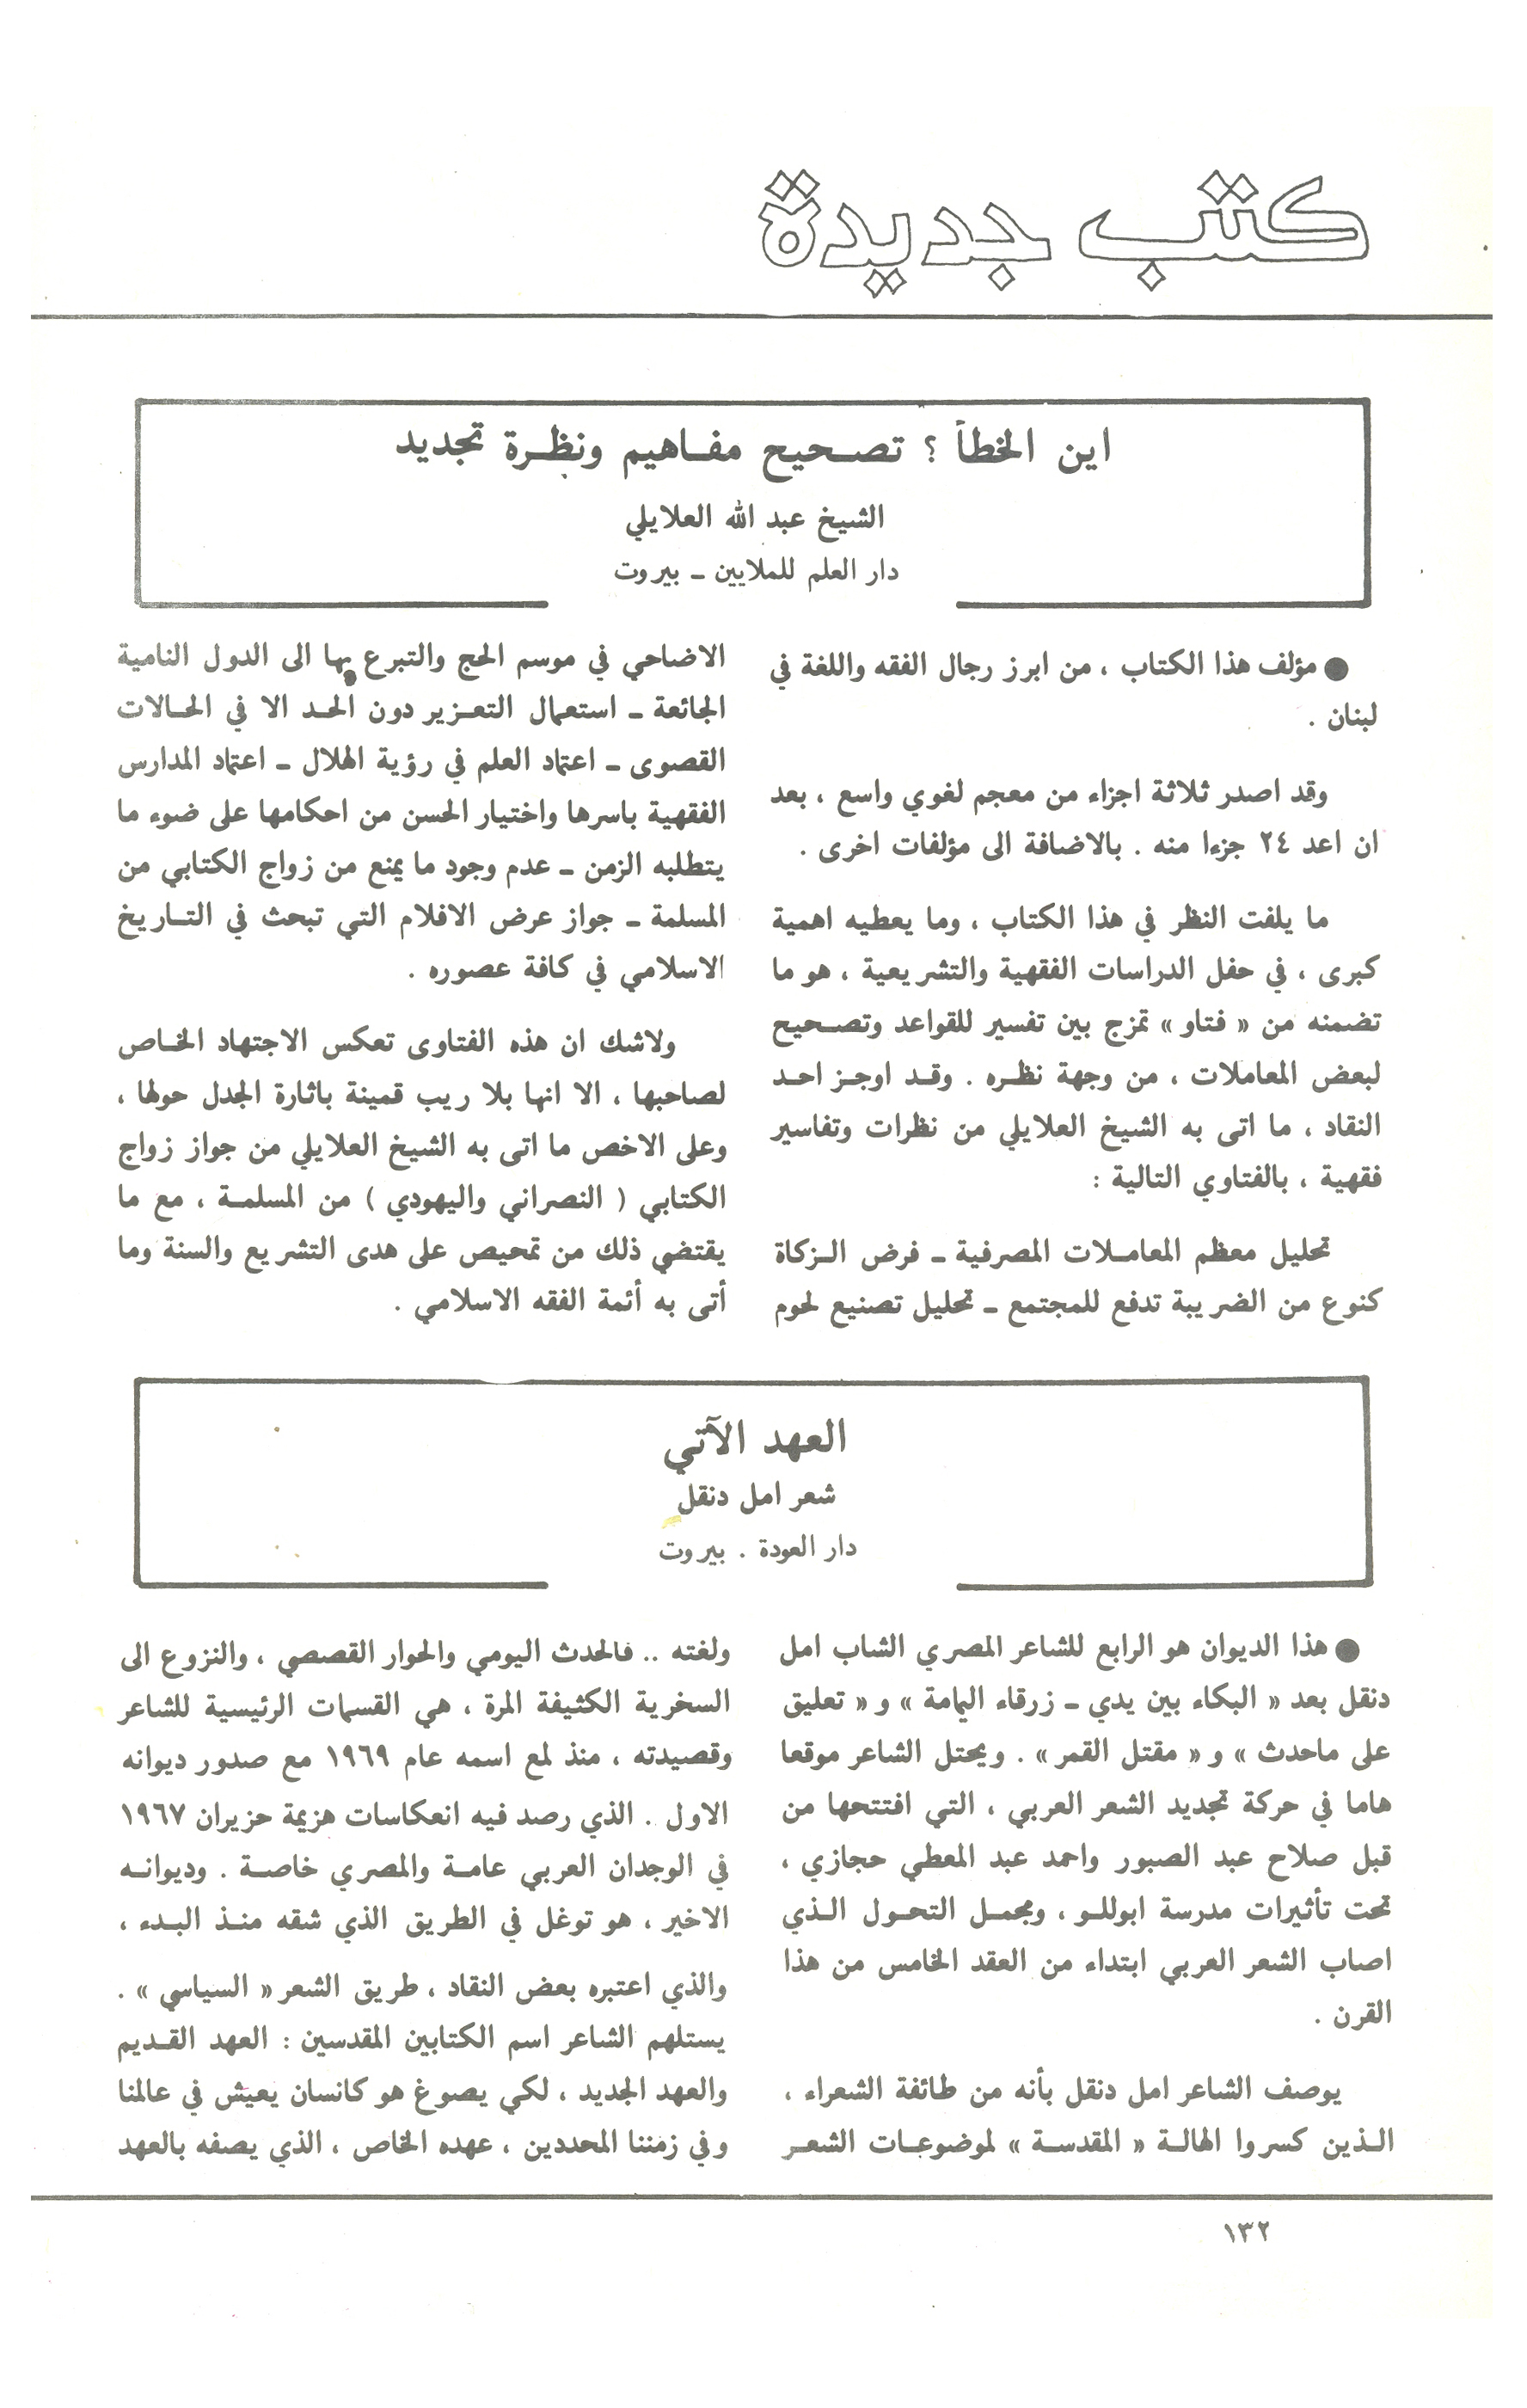 كتب جديدة
اين الخطأ ؟ تصحيح مفاهيم ونظرة تجديد
الشيخ عبد الله العلايلي
دار العلم للملايين ـ بيروت
● مؤلف هذا الكتاب ، من ابرز رجال الفقه واللغة في
لبنان .
وقد اصدر ثلاثة اجزاء من معجم لغوي واسع ، بعد
ان اعد ٢٤ جزءا منه . بالاضافة الى مؤلفات اخرى .
ما يلفت النظر في هذا الكتاب ، وما يعطيه اهمية
كبرى ، في حفل الدراسات الفقهية والتشريعية ، هو ما
تضمنه من « فتاو » تمزج بين تفسير للقواعد وتصحيح
لبعض المعاملات ، من وجهة نظره . وقد اوجز احد
النقاد ، ما اتى به الشيخ العلايلي من نظرات وتفاسير
فقهية ، بالفتاوي التالية :
تحليل معظم المعاملات المصرفية ـ فرض الزكاة
كنوع من الضريبة تدفع للمجتمع ـ تحليل تصنيع لحوم
الاضاحي في موسم الحج والتبرع بها الى الدول النامية
الجائعة ـ استعمال التعزير دون الحد الا في الحالات
القصوى ـ اعتماد العلم في رؤية الهلال ـ اعتماد المدارس
الفقهية باسرها واختيار الحسن من احكامها على ضوء ما
يتطلبه الزمن ـ عدم وجود ما يمنع من زواج الكتابي من
المسلمة ـ جواز عرض الافلام التي تبحث في التاريخ
الاسلامي في كافة عصوره .
ولاشك ان هذه الفتاوى تعكس الاجتهاد الخاص
لصاحبها ، الا انها بلا ريب قمينة باثارة الجدل حولها ،
وعلى الاخص ما اتى به الشيخ العلايلي من جواز زواج
الكتابي ( النصراني واليهودي ) من المسلمة ، مع ما
يقتضي ذلك من تمحيص على هدى التشريع والسنة وما
أتى به أئمة الفقه الاسلامي .
العهد الآتي
شعر امل دنقل
دار العودة . بيروت
● هذا الديوان هو الرابع للشاعر المصري الشاب امل
دنقل بعد « البكاء بين يدي ـ زرقاء اليمامة » و « تعليق
على ماحدث » و « مقتل القمر » . ويحتل الشاعر موقعا
هاما في حركة تجديد الشعر العربي ، التي افتتحها من
قبل صلاح عبد الصبور واحمد عبد المعطي حجازي ،
تحت تأثيرات مدرسة ابوللو ، ومجمل التحول الذي
اصاب الشعر العربي ابتداء من العقد الخامس من هذا
القرن .
يوصف الشاعر امل دنقل بأنه من طائفة الشعراء ،
الذين كسروا الهالة « المقدسة » لموضوعات الشعر
ولغته .. فالحدث اليومي والحوار القصصي ، والنزوع الى
السخرية الكثيفة المرة ، هي القسمات الرئيسية للشاعر
وقصيدته ، منذ لمع اسمه عام ١٩٦٩ مع صدور ديوانه
الاول . الذي رصد فيه انعكاسات هزيمة حزيران ١٩٦٧
في الوجدان العربي عامة والمصري خاصة . وديوانه
الاخير ، هو توغل في الطريق الذي شقه منذ البدء ،
والذي اعتبره بعض النقاد ، طريق الشعر « السياسي » .
يستلهم الشاعر اسم الكتابين المقدسين : العهد القديم
والعهد الجديد ، لكي يصوغ هو كانسان يعيش في عالمنا
وفي زمننا المحددين ، عهده الخاص ، الذي يصفه بالعهد
١٣٢